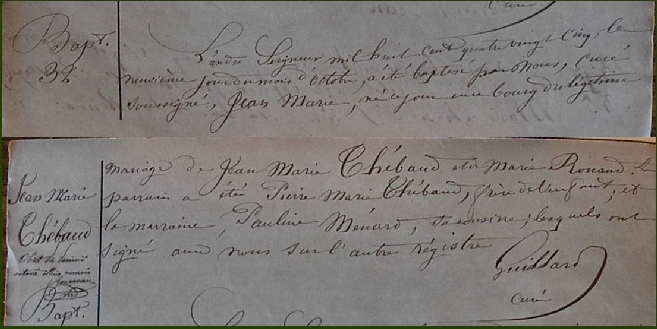 Curé
Bapt.
32
L'an du Seigneur mil huit cent quatre vingt cinq, le
neuvième jour du mois d'octobre, a été baptisé par nous, curé
soussigné, Jean Marie, né ce jour au bourg du légitime
mariage de Jean Marie Thébaud et de Marie Rouaud. Le
parrain a été Pierre Marie Thébaud, frère de l'enfant, et
la marraine, Pauline Ménard, sa cousine; lesquels ont
signé avec nous sur l'autre régistre
Guillard
curé
Jean Marie
Thébaud
Bapt.